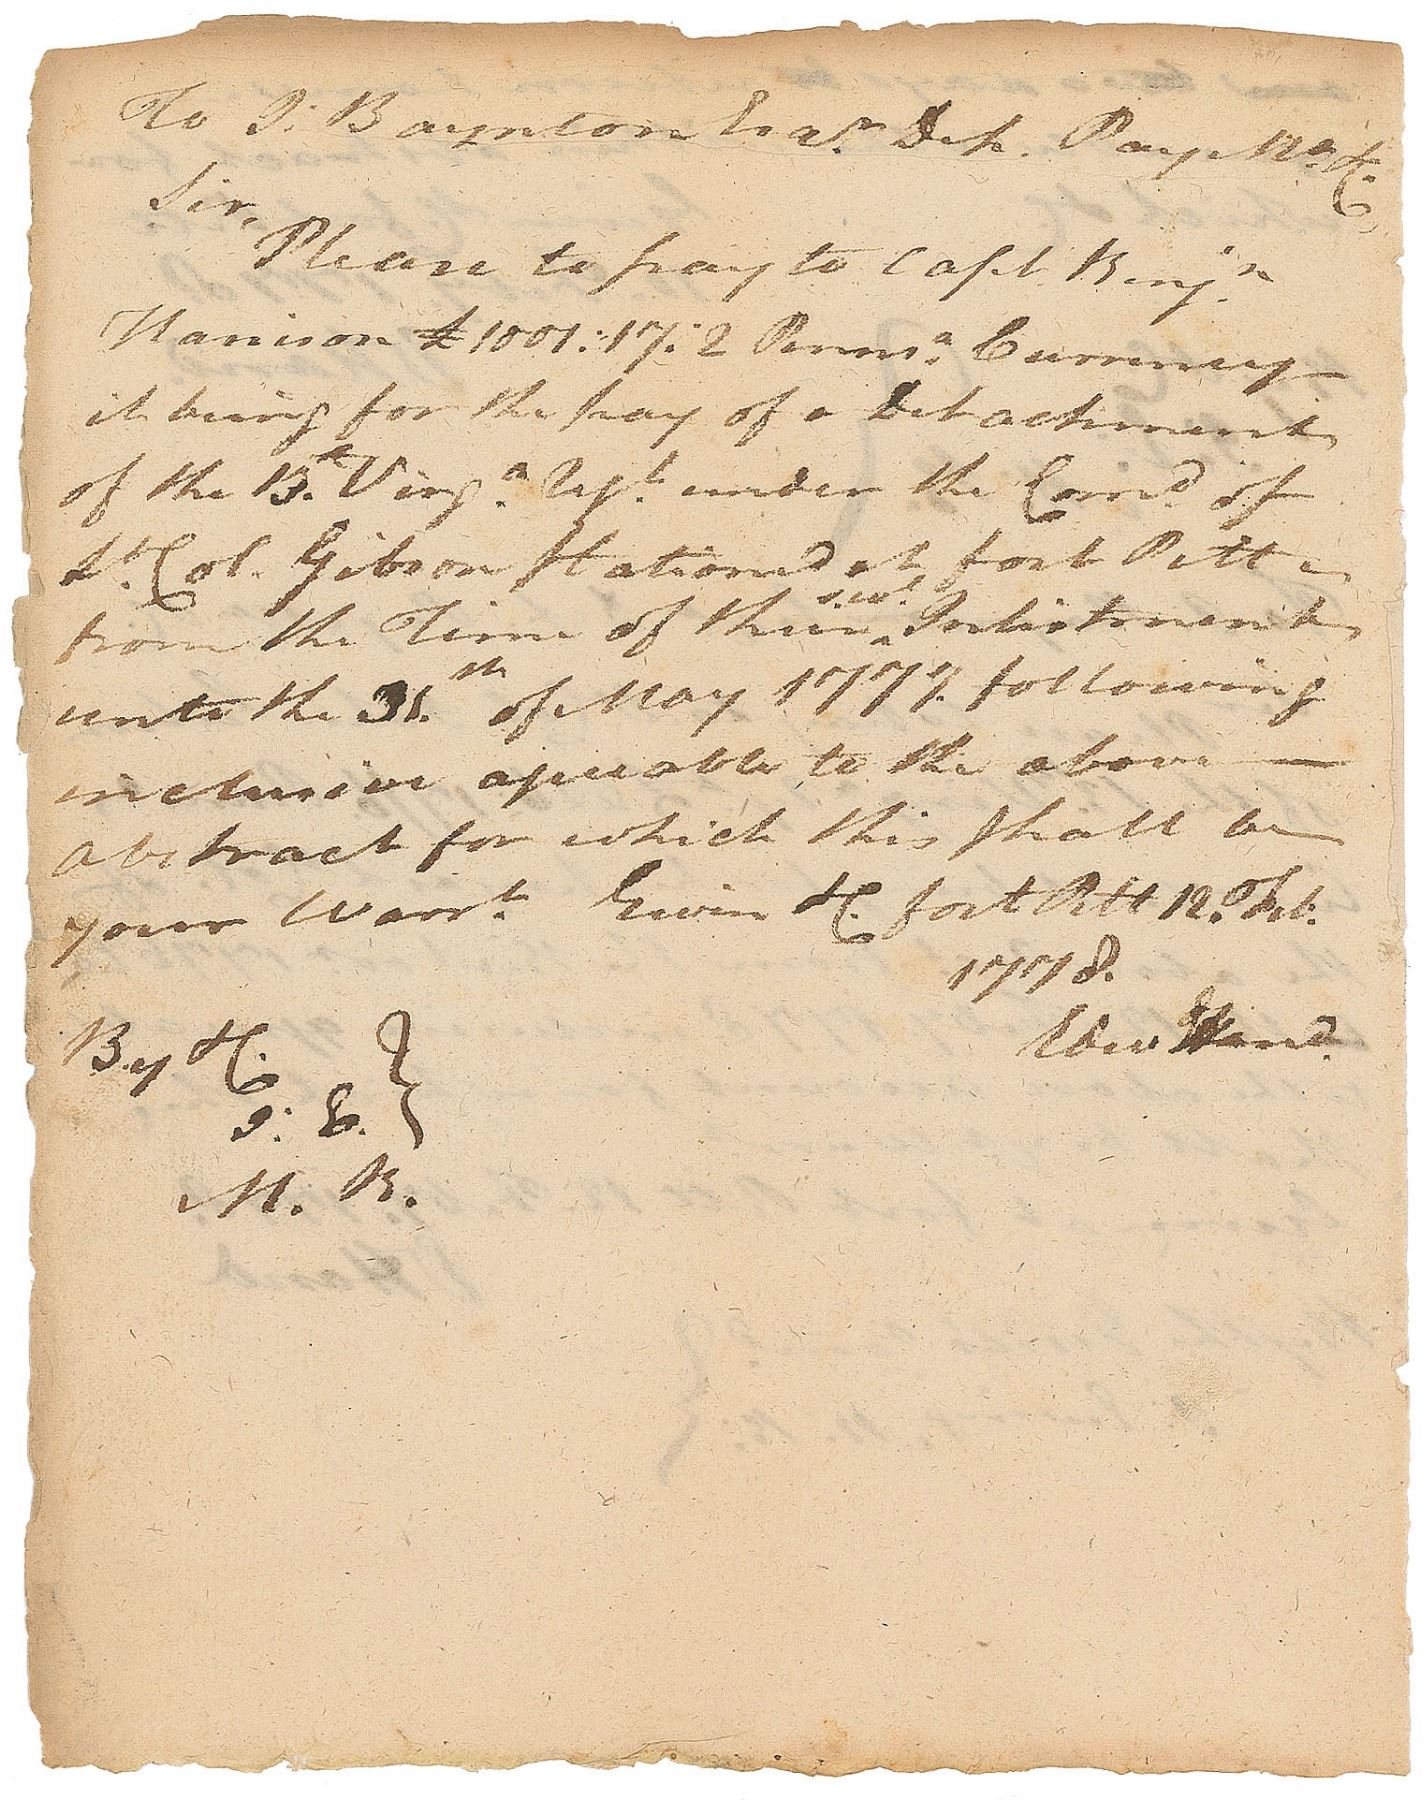 To P: Baynton Esqr. Dep. Pay Mr. &C.
Sir,
Please to pay to Capt. Benj.n
Harrison £1001:17:2 Penns.a Currency
it being for the pay of a Detachment
of the 13.th Virg.a Regt. under the Com.d of
Lt. Col. Gibson Stationed at fort Pitt
from the Time of their sevl. Inlistments
unto the 31.th of May 1777. following
inclusive agreeable to the above —
Abstract for which this shall be
your Warrt. Given &C. fort Pitt 12.th Feb.
1778.
Edw.d Hand.
By &C.
J: E.
M. B.